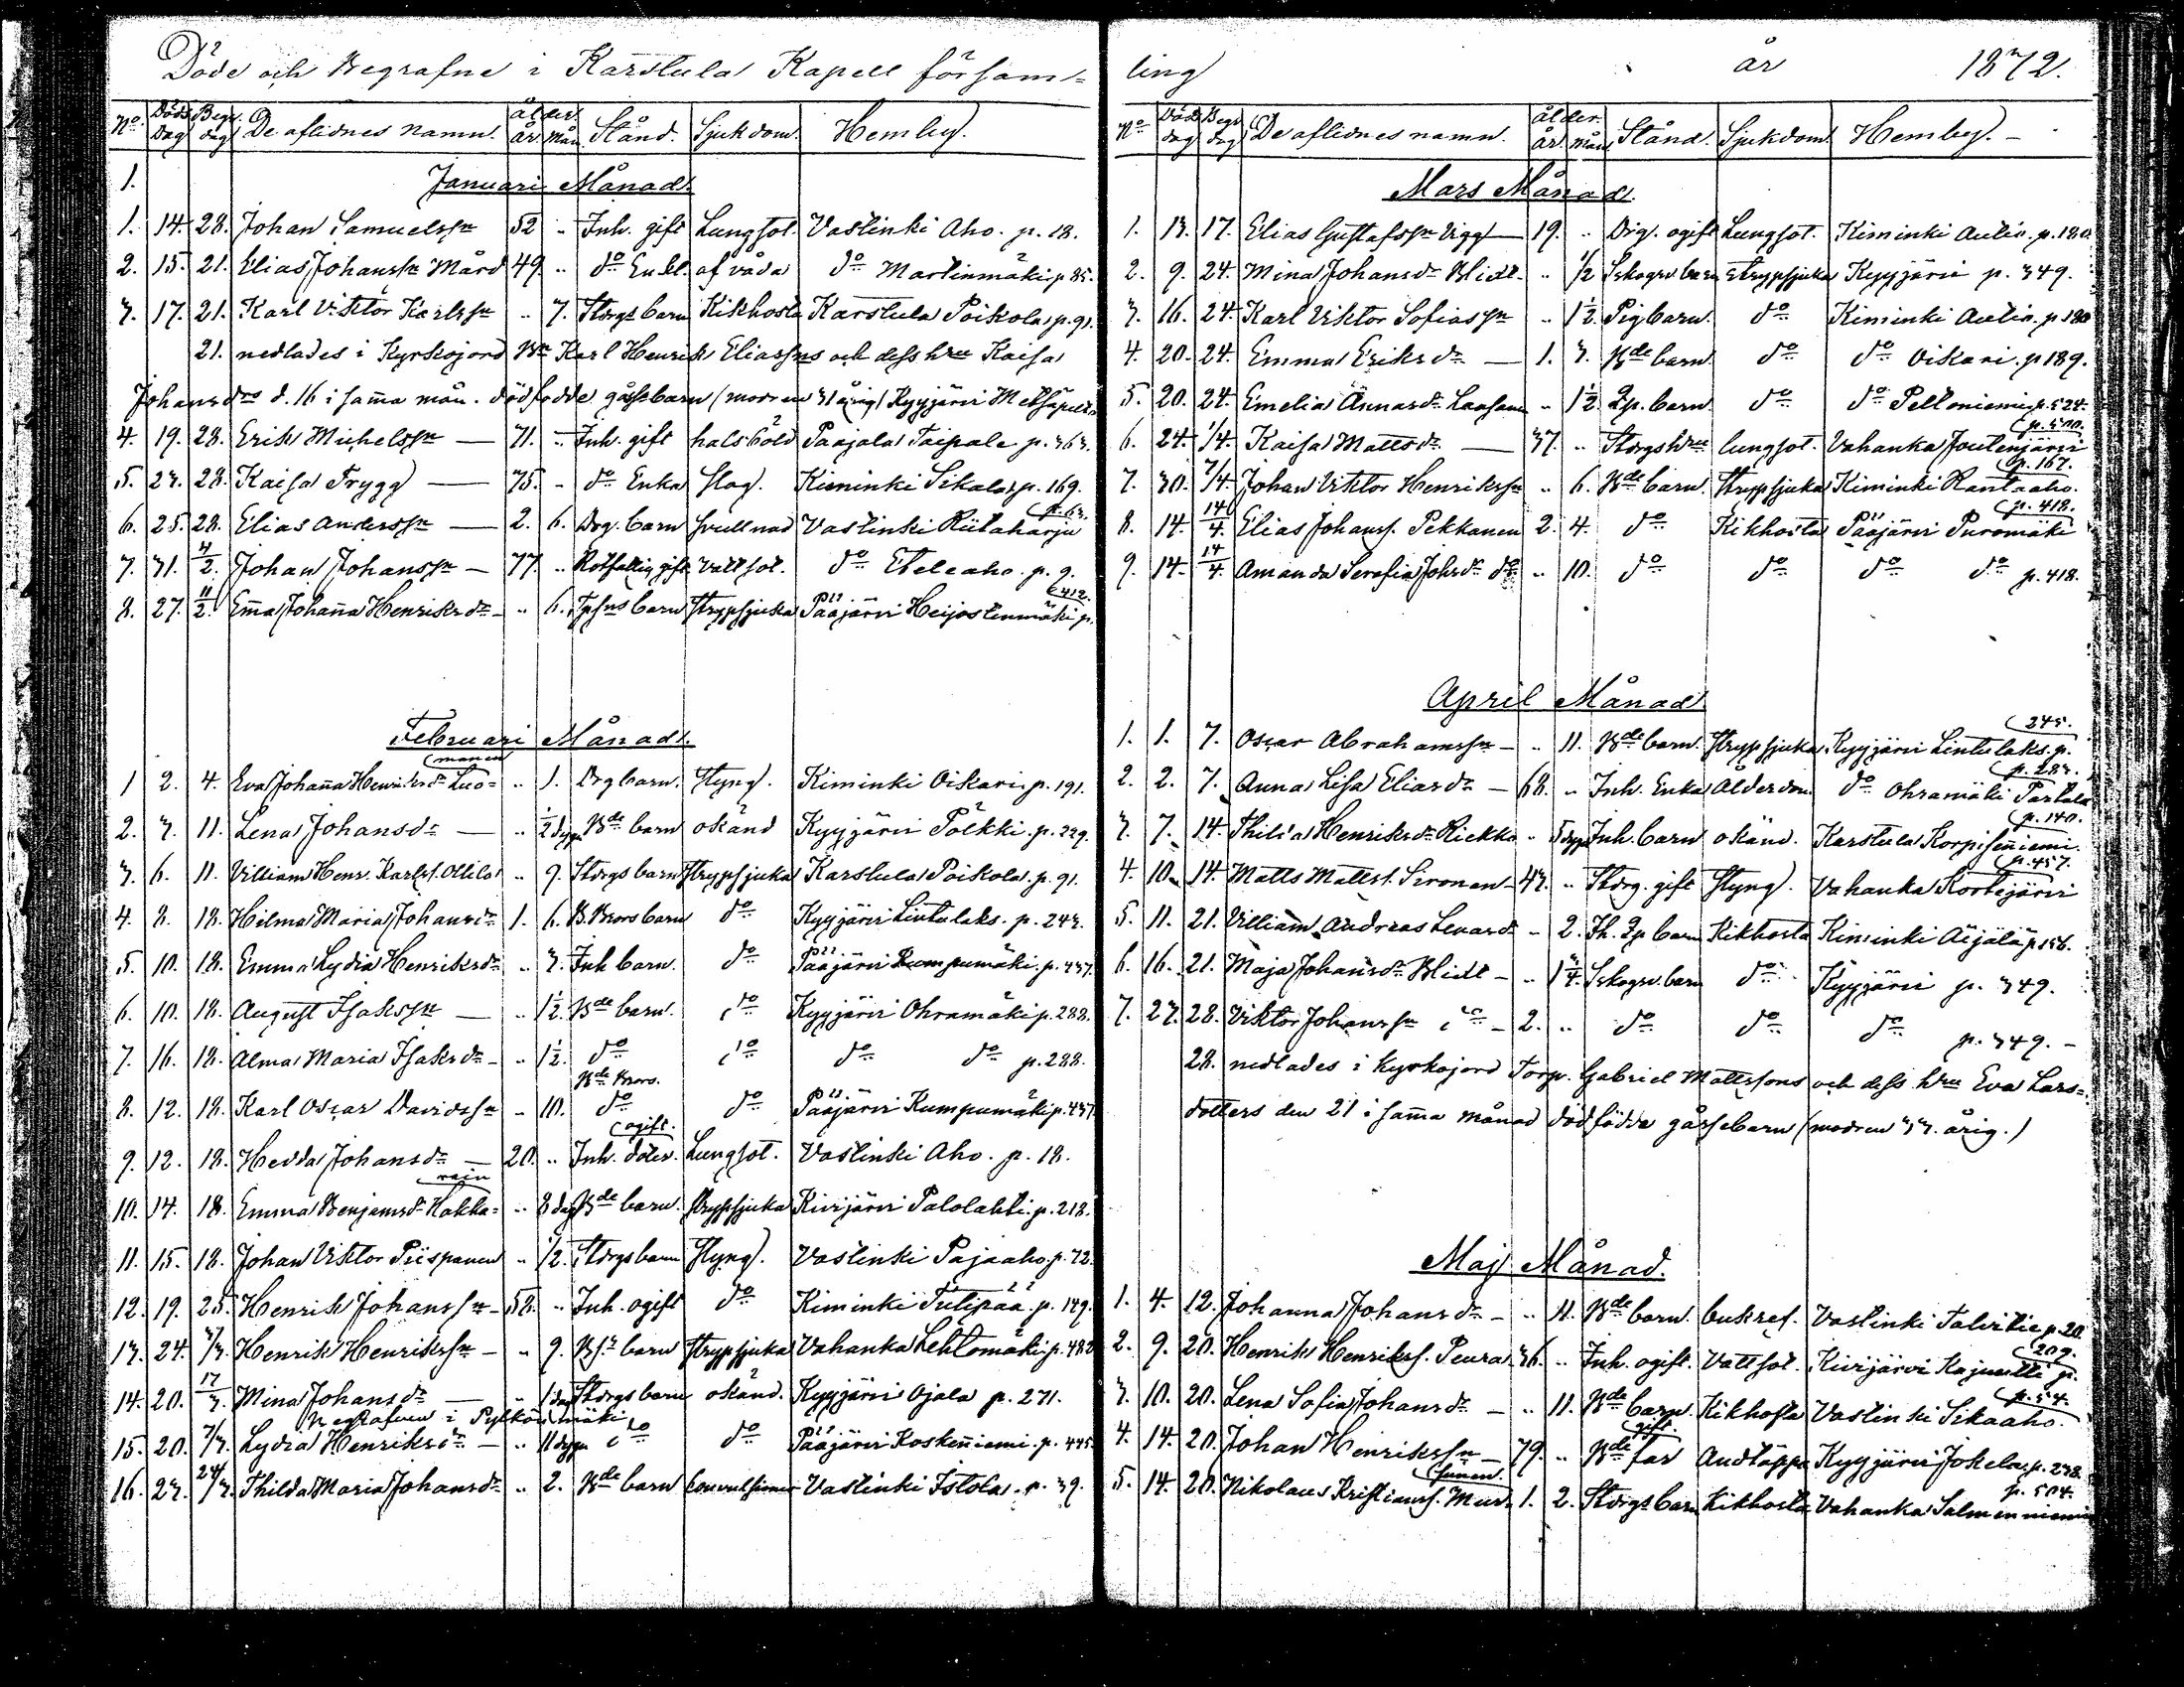 Döde och Begrafne i Karstula Kapell församling år 1872.
No. Döds Dag Begr. dag De aflidnes namn. ålder år. Mån. Stånd. Sjukdom. Hemby.
1. Januari Månad.
1. 14. 28. Johan Samuelssn 52 .. Inh. gift Lungsot. Vastinki Aho. p. 18.
2. 15. 21. Elias Johanssn Mård 49. .. do Enkl. af våda do Martinmäki p. 85.
3. 17. 21. Karl Viktor Karlssn .. 7. Storgs barn Kikhosta Karstula Poikola p. 91.
21. nedlades i Kyrkojord Bn Karl Henrik Eliassns och dess hru Kaisa
Johansdrs d. 16 i sama mån. dödfödde gåssebarn (modren 31 årig) Kyyjärvi
4. 19. 28. Erik Michelssn — 71. .. Inh. gift halsböld Paajala Taipale p. 363.
5. 23. 28. Kaisa Trygg — 75. - do Enka slag. Kiminki Sikala p. 169.
6. 25. 28. Elias Anderssn — 2. 6. Drg. barn svullnad Vastinki Riitaharju p. 63.
7. 31. 4/2. Johan Johanssn — 77. .. Rotfattig gift Vattsot. do Eteleaho. p. 9.
8. 27. 11/2. Ema Johana Henriksdr - .. 6. barn strypsjuka Pääjärvi Heijostenmäki p. 412.
Februari Månad.
1 2. 4. Eva Johana Henriksdr Luomanen .. 1. Drg barn. Styng. Kiminki Oikari p. 191.
2. 3. 11. Lena Johansdr — .. 1/2 dygn Bde barn okänd Kyyjärvi Pölkki. p. 229.
3. 6. 11. Villiam Henr. Karlss. Ollila .. 9. Storgs barn Strypsjuka Karstula Poikola. p. 91.
4. 8. 18. Hilma Maria Johansdr 1. 6. B. Brors barn do Kyyjärvi Lintulaks. p. 243.
5. 10. 18. Emma Lydia Henriksdr .. 3. Inh barn. do Pääjärvi Kumpumäki p. 437.
6. 10. 18. August Isakssn — .. 1 1/2 Bde barn. do Kyyjärvi Ohramäki p. 288.
7. 16. 18. Alma Maria Isaksdr - .. 1 1/2. do do do do p. 288.
8. 12. 18. Karl Oscar Davidssn - 10. Bde Brors. do do Pääjärvi Kumpumäki p. 437.
9. 12. 18. Hedda Johansdr — 20. .. Inh. doter. ogift. Lungsot. Vastinki Aho. p. 18.
10. 14. 18. Emma Benjamsdr Hakkarain .. 8 dyg Bde barn. strypsjuka Kivijärvi Palolahti. p. 218.
11. 15. 18. Johan Viktor Piispanen .. 1/2. Storgs barn Styng. Vastinki Pajaaho. p. 72.
12. 19. 25. Henrik Johanssn - 58. .. Inh. ogift do Kiminki Tulipää. p. 149.
13. 24. 3/3. Henrik Henrikssn - .. 9. barn strypsjuka Vahanka Lehtomäki p. 482
14. 20. 17/3. Mina Johansdr — .. 1 dag Storgs barn okänd. Kyyjärvi Ojala p. 271.
Begrafven i Pylkönmäki
15. 20. 7/3. Lydia Henriksdr — .. 11 dygn do do Pääjärvi Koskenniemi. p. 445.
16. 23. 24/3. Thilda Maria Johansdr .. 2. Bde barn Convulsioner Vastinki Istola. p. 39.
No. Döds dag Begr dag De aflidnes namn. ålder. år. mån. Stånd. Sjukdom. Hemby. -
Mars Månad.
1. 13. 17. Elias Gustafssn Vigg — 19. .. Drg. ogift Lungsot. Kiminki Autio. p. 180
2. 9. 24. Mina Johansdr Blidt - .. 1/2 Skogsv. barn strypsjuka Kyyjärvi p. 349.
3. 16. 24. Karl Viktor Sofiasn .. 1 1/2. Pig barn. do Kiminki Autio. p. 180
4. 20. 24. Emma Eriksdr — 1. 3. Bde barn. do do Oikari. p. 189.
5. 20. 24. Emelia Annasdr Laasane .. 1 1/2 Lp. barn. do do Peltoniemi p. 524.
6. 24. 1/4. Kaisa Mattsdr — 37. .. Storgs hru lungsot. Vahanka Joutenjärvi p. 500.
7. 30. 7/4. Johan Viktor Henrikssn .. 6. Bde barn. Strypsjuka Kiminki Rantaaho. p. 167.
8. 14. 14/4. Elias Johanss. Pekkanen 2. 4. do Kikhosta Pääjärvi Puromäki p. 418.
9. 14. 14/4. Amanda Serafia Johsdr do .. 10. do do do do p. 418.
April Månad
1. 1. 7. Oscar Abrahamssn - .. 11. Bde barn. Strypsjuka Kyyjärvi Lintulaks. p. 245.
2. 2. 7. Anna Lisa Eliasdr — 68. .. Inh. Enka Ålderdom do Ohramäki Partala p. 283.
3. 7. 14. Thilda Henriksdr Riekko .. 5 dyg Inh. barn okänd. Karstula Korpiseniemi. p. 140.
4. 10. 14. Matts Mattss. Sironen 43. .. Storg. gift Styng. Vahanka Korkejärvi p. 457.
5. 11. 21. Villiam Andreas Lenasdr - 2. Th. Lp barn Kikhosta Kiminki Äijälä p 156.
6. 16. 21. Maja Johansdr Blidt - .. 1 3/4. Skogsv. barn do Kyyjärvi p. 349.
7. 27. 28. Viktor Johanssn do - 2. .. do do do p. 349. -
28. nedlades i kyrkojord Torp. Gabriel Mattssons och dess hru Eva Lars-
dotters den 21 i sama månad dödfödde gåssebarn (modren 33. årig.)
Maj Månad.
1. 4. 12. Johanna Johansdr - .. 11. Bde barn. bukref. Vastinki Talvitie p. 20.
2. 9. 20. Henrik Henrikss. Peura 36. .. Inh. ogift. Vattsot. Kivijärvi p. 209.
3. 10. 20. Lena Sofia Johansdr - .. 11. Bde barn. Kikhosta Vastinki Sikaaho. p. 54.
4. 14. 20. Johan Henrikssn - 79. .. Bde far gift Andtäppa Kyyjärvi Jokela p. 238.
5. 14. 20. Nikolaus Kristianss. Mursunen. 1. 2. Storgs barn Kikhosta Vahanka Salmenniemi p. 504.